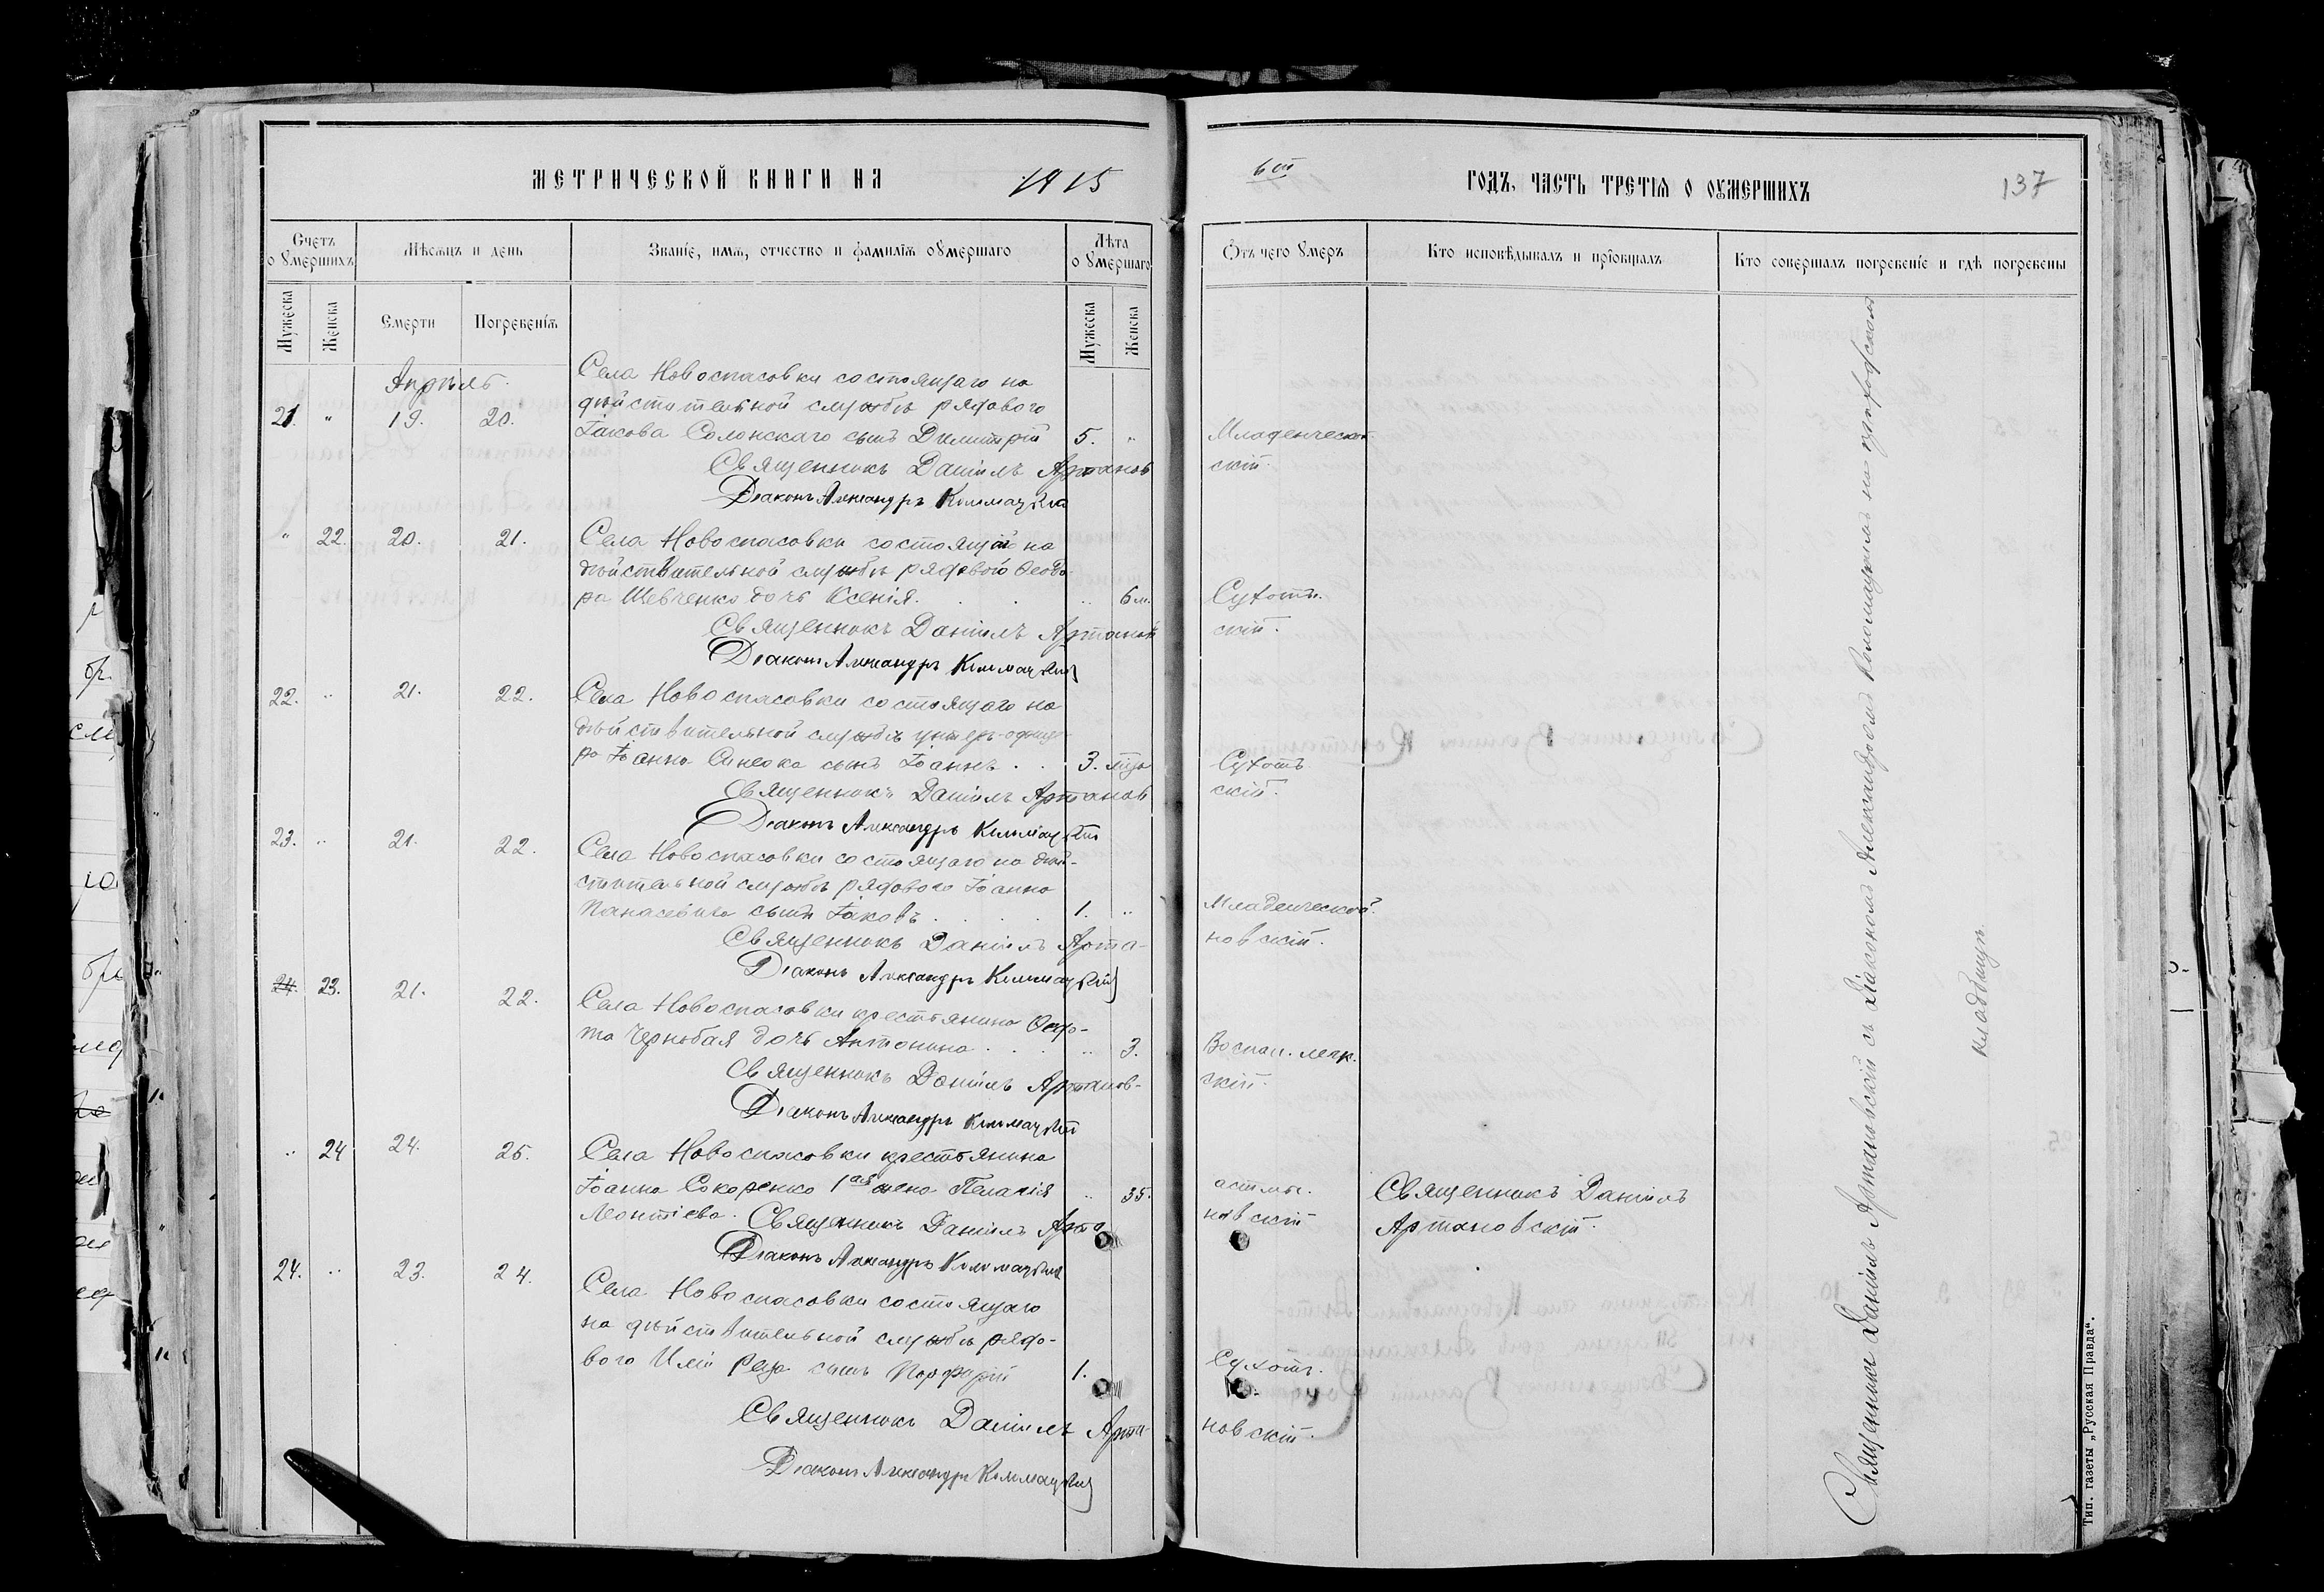 МЕТРИЧЕСКОЙ КНИГИ НА 1915
Счетъ оумершихъ
Мѣсяцъ и день
Званіе, имя, отчество и фамилія оумершаго
Лѣта оумершаго
Мужеска
Женска
Смерти
Погребенія
Мужеска
Женска
Апрѣль.
Села Новоспасовки состоящаго на
21. " 19. 20. дѣйствительной службѣ рядового
Іакова Солонскаго сынъ Димитрій 5. "
Священникъ Даніилъ Артанов
Діаконъ Александръ
" 22. 20. 21. Села Новоспасовки состоящаго на
дѣйствительной службѣ рядовой Ѳеодо-
ра Шевченко дочь Ксенія. " 6 м.
Священникъ Даніилъ Артанов
Діаконъ Александръ
22. " 21. 22. Села Новоспасовки состоящаго на
дѣйствительной службѣ унтеръ-офице-
ра Іоанна Синеока сынъ Іоаннъ . . 3. мца
Священникъ Даніилъ Артанов
Діаконъ Александръ
23. " 21. 22. Села Новоспасовки состоящаго на дѣй-
ствительной службѣ рядового Іоанна
сынъ Іаковъ . . . . 1. "
Священникъ Даніилъ Арта-
Діаконъ Александръ
24. 23. 21. 22. Села Новоспасовки крестьянина
Чернобая дочь Антонина . . . " 3.
Священникъ Даніилъ Артанов-
Діаконъ Александръ
" 24 24. 25. Села Новоспасовки крестьянина
Іоанна Сокоренко 1ая жена Пелагія " 35.
Леонтіева. Священникъ Даніилъ Арта
Діаконъ Александръ
24. " 23. 24. Села Новоспасовки состоящаго
на дѣйствительной службѣ рядо-
вого Иліи сынъ Порфирій 1.
Священникъ Даніилъ Арта-
Діаконъ Александръ
ГОДЪ, ЧАСТЬ ТРЕТІЯ О ОУМЕРШИХЪ
137
Отъ чего умеръ
Кто исповѣдывалъ и пріобщалъ
Кто совершалъ погребеніе и гдѣ погребены
Младенческой.
скій.
Сухоты.
скій.
Сухотъ
скій.
Младенческой.
новскій.
Воспал. легк.
скій.
астмы.
новскій
Священникъ Даніилъ
Артановскій.
Сухотъ.
новскій.
Священникъ Даніилъ Артановскій съ Діакономъ Александромъ на приходскомъ
кладбищѣ.
Тип. газеты „Русская Правда“.